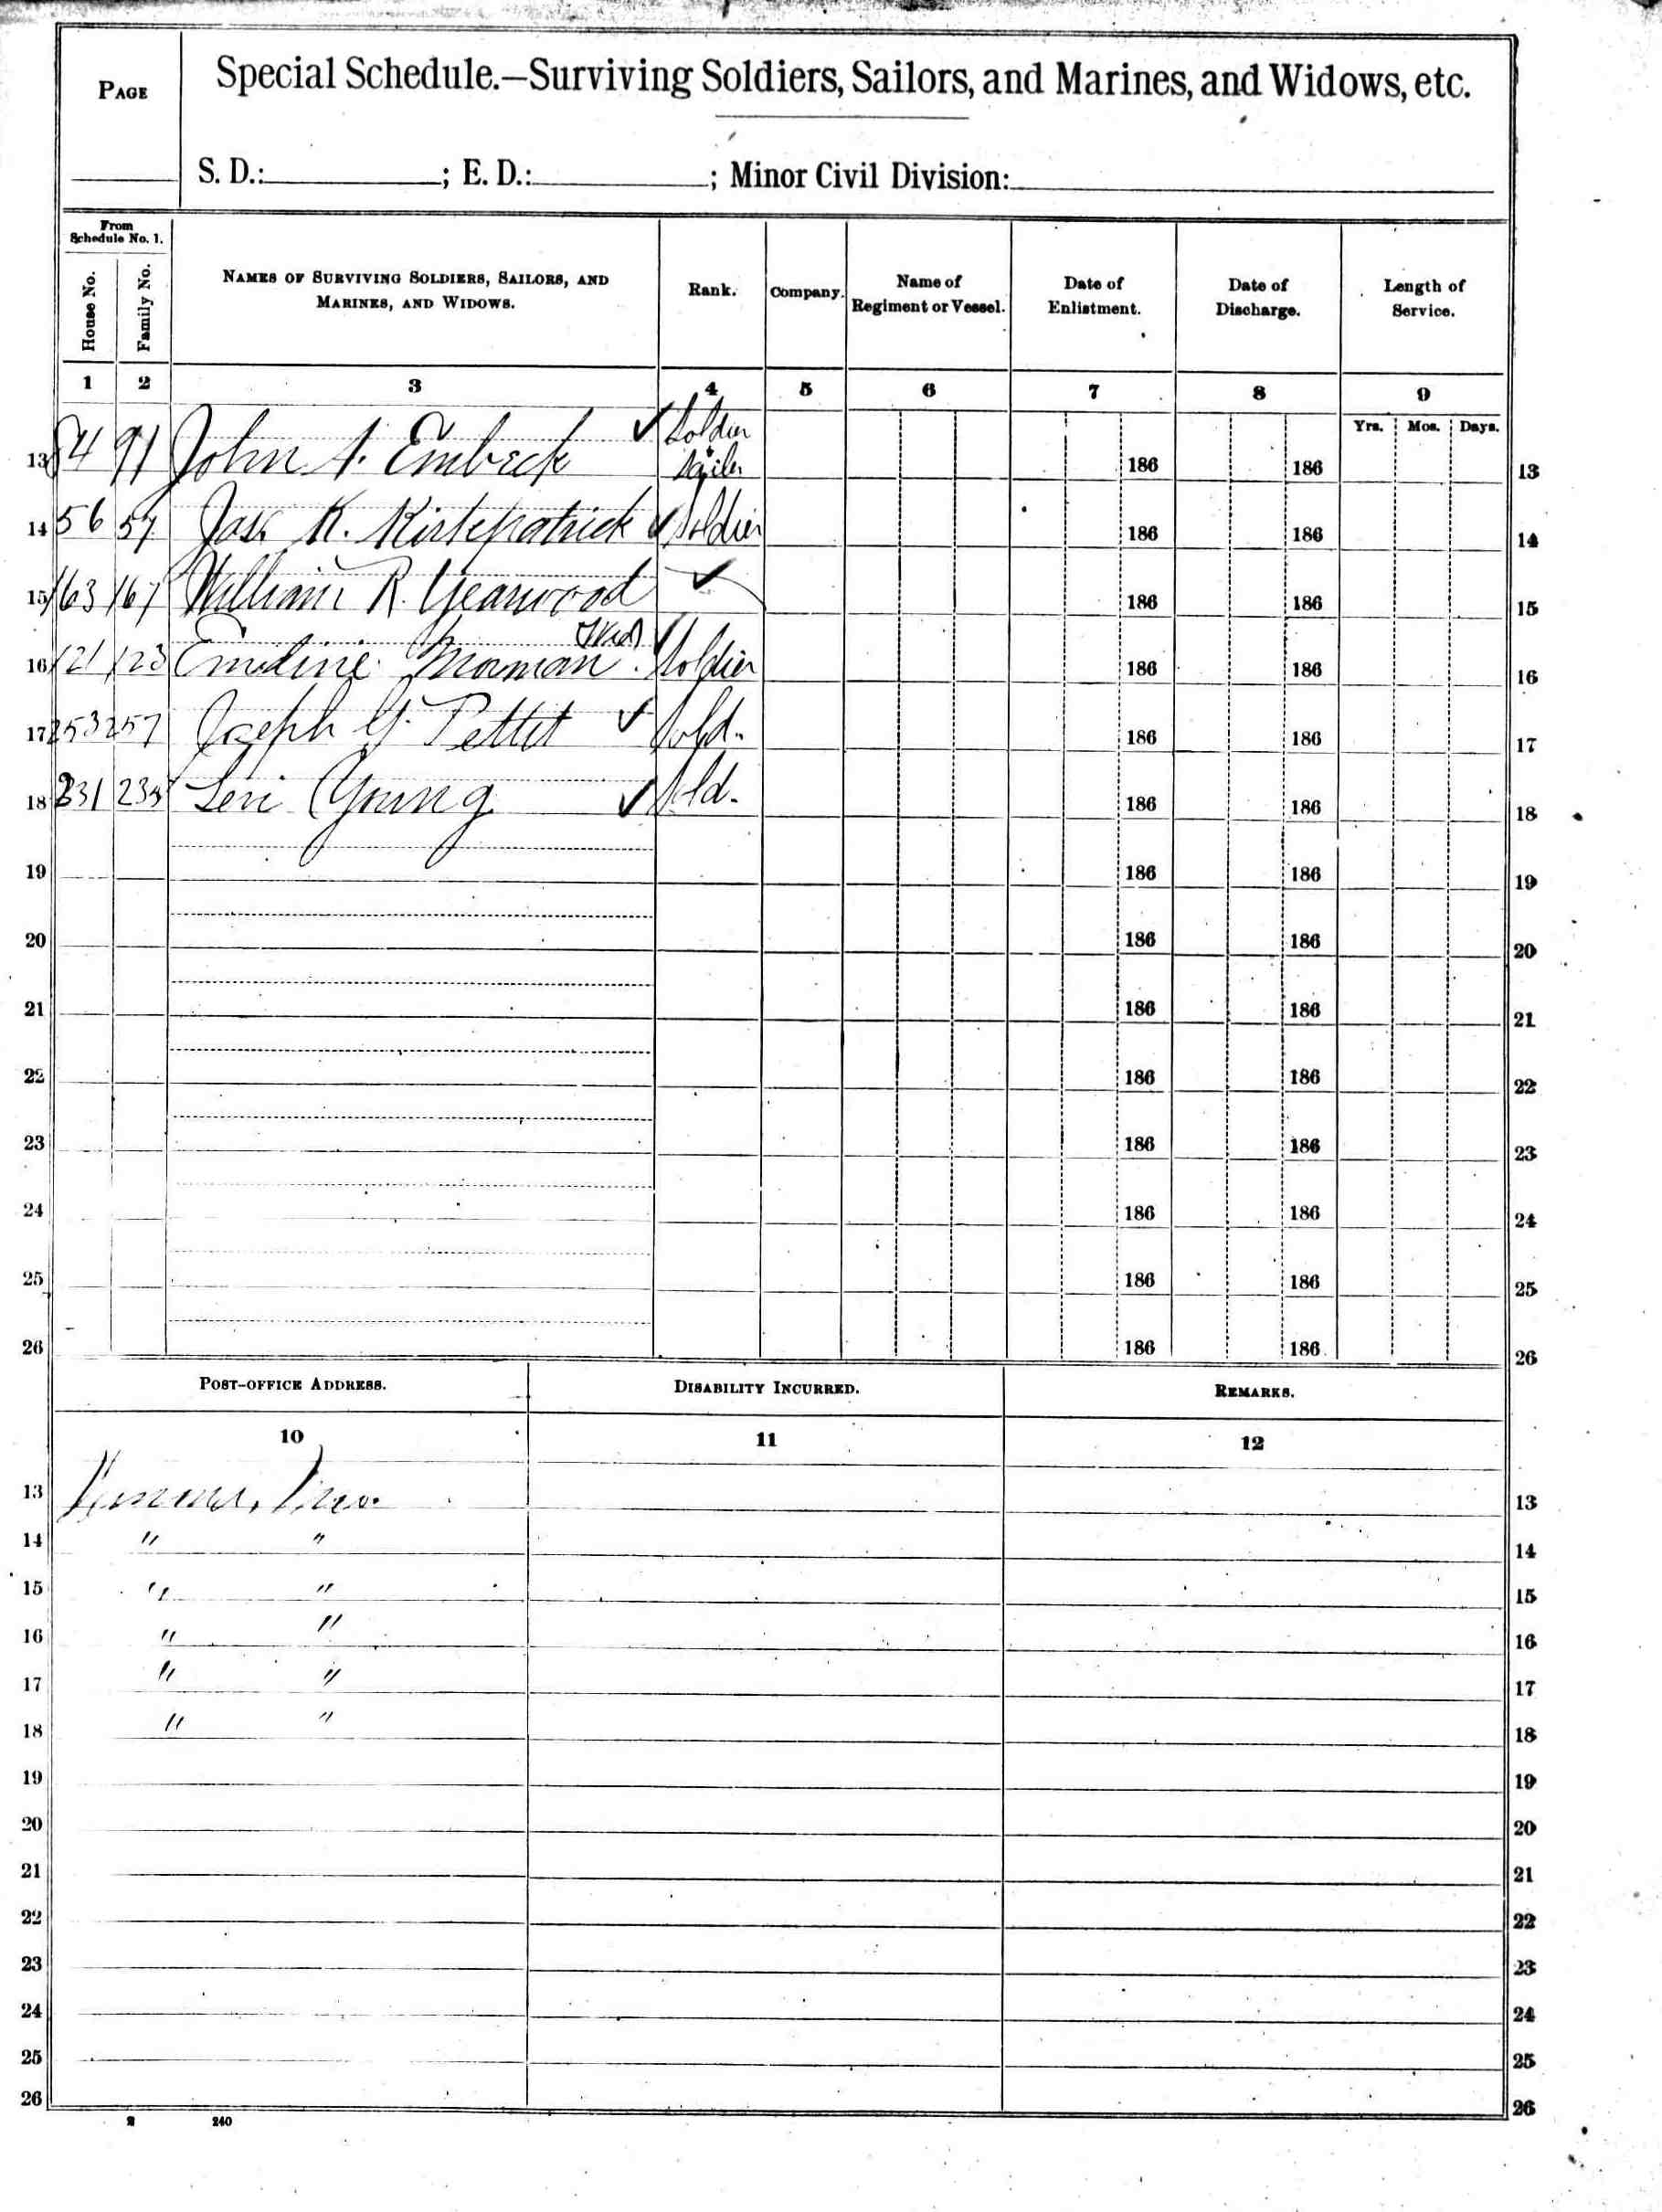 PAGE
Special Schedule.—Surviving Soldiers, Sailors, and Marines, and Widows, etc.
S. D.: ; E. D.: ; Minor Civil Division:
From Schedule No. 1.
House No.
Family No.
NAMES OF SURVIVING SOLDIERS, SAILORS, AND MARINES, AND WIDOWS.
Rank.
Company.
Name of Regiment or Vessel.
Date of Enlistment.
Date of Discharge.
Length of Service.
1 2 3 4 5 6 7 8 9
Yrs. Mos. Days.
13 84 91 John A. Embeck ✓ Soldier Sailor 186 186 13
14 56 57 Jas. K. Kirkpatrick ✓ Soldier 186 186 14
15 163 167 William R. Yearwood ✓ 186 186 15
16 121 123 Emeline Morman (Wid) Soldier 186 186 16
17 253 257 Joseph G. Pettit ✓ Sold. 186 186 17
18 231 235 Levi Young ✓ Sold. 186 186 18
19 186 186 19
20 186 186 20
21 186 186 21
22 186 186 22
23 186 186 23
24 186 186 24
25 186 186 25
26 186 186 26
POST-OFFICE ADDRESS. DISABILITY INCURRED. REMARKS.
10 11 12
13 13
14 " " 14
15 " " 15
16 " " 16
17 " " 17
18 " " 18
19 19
20 20
21 21
22 22
23 23
24 24
25 25
26 26
240